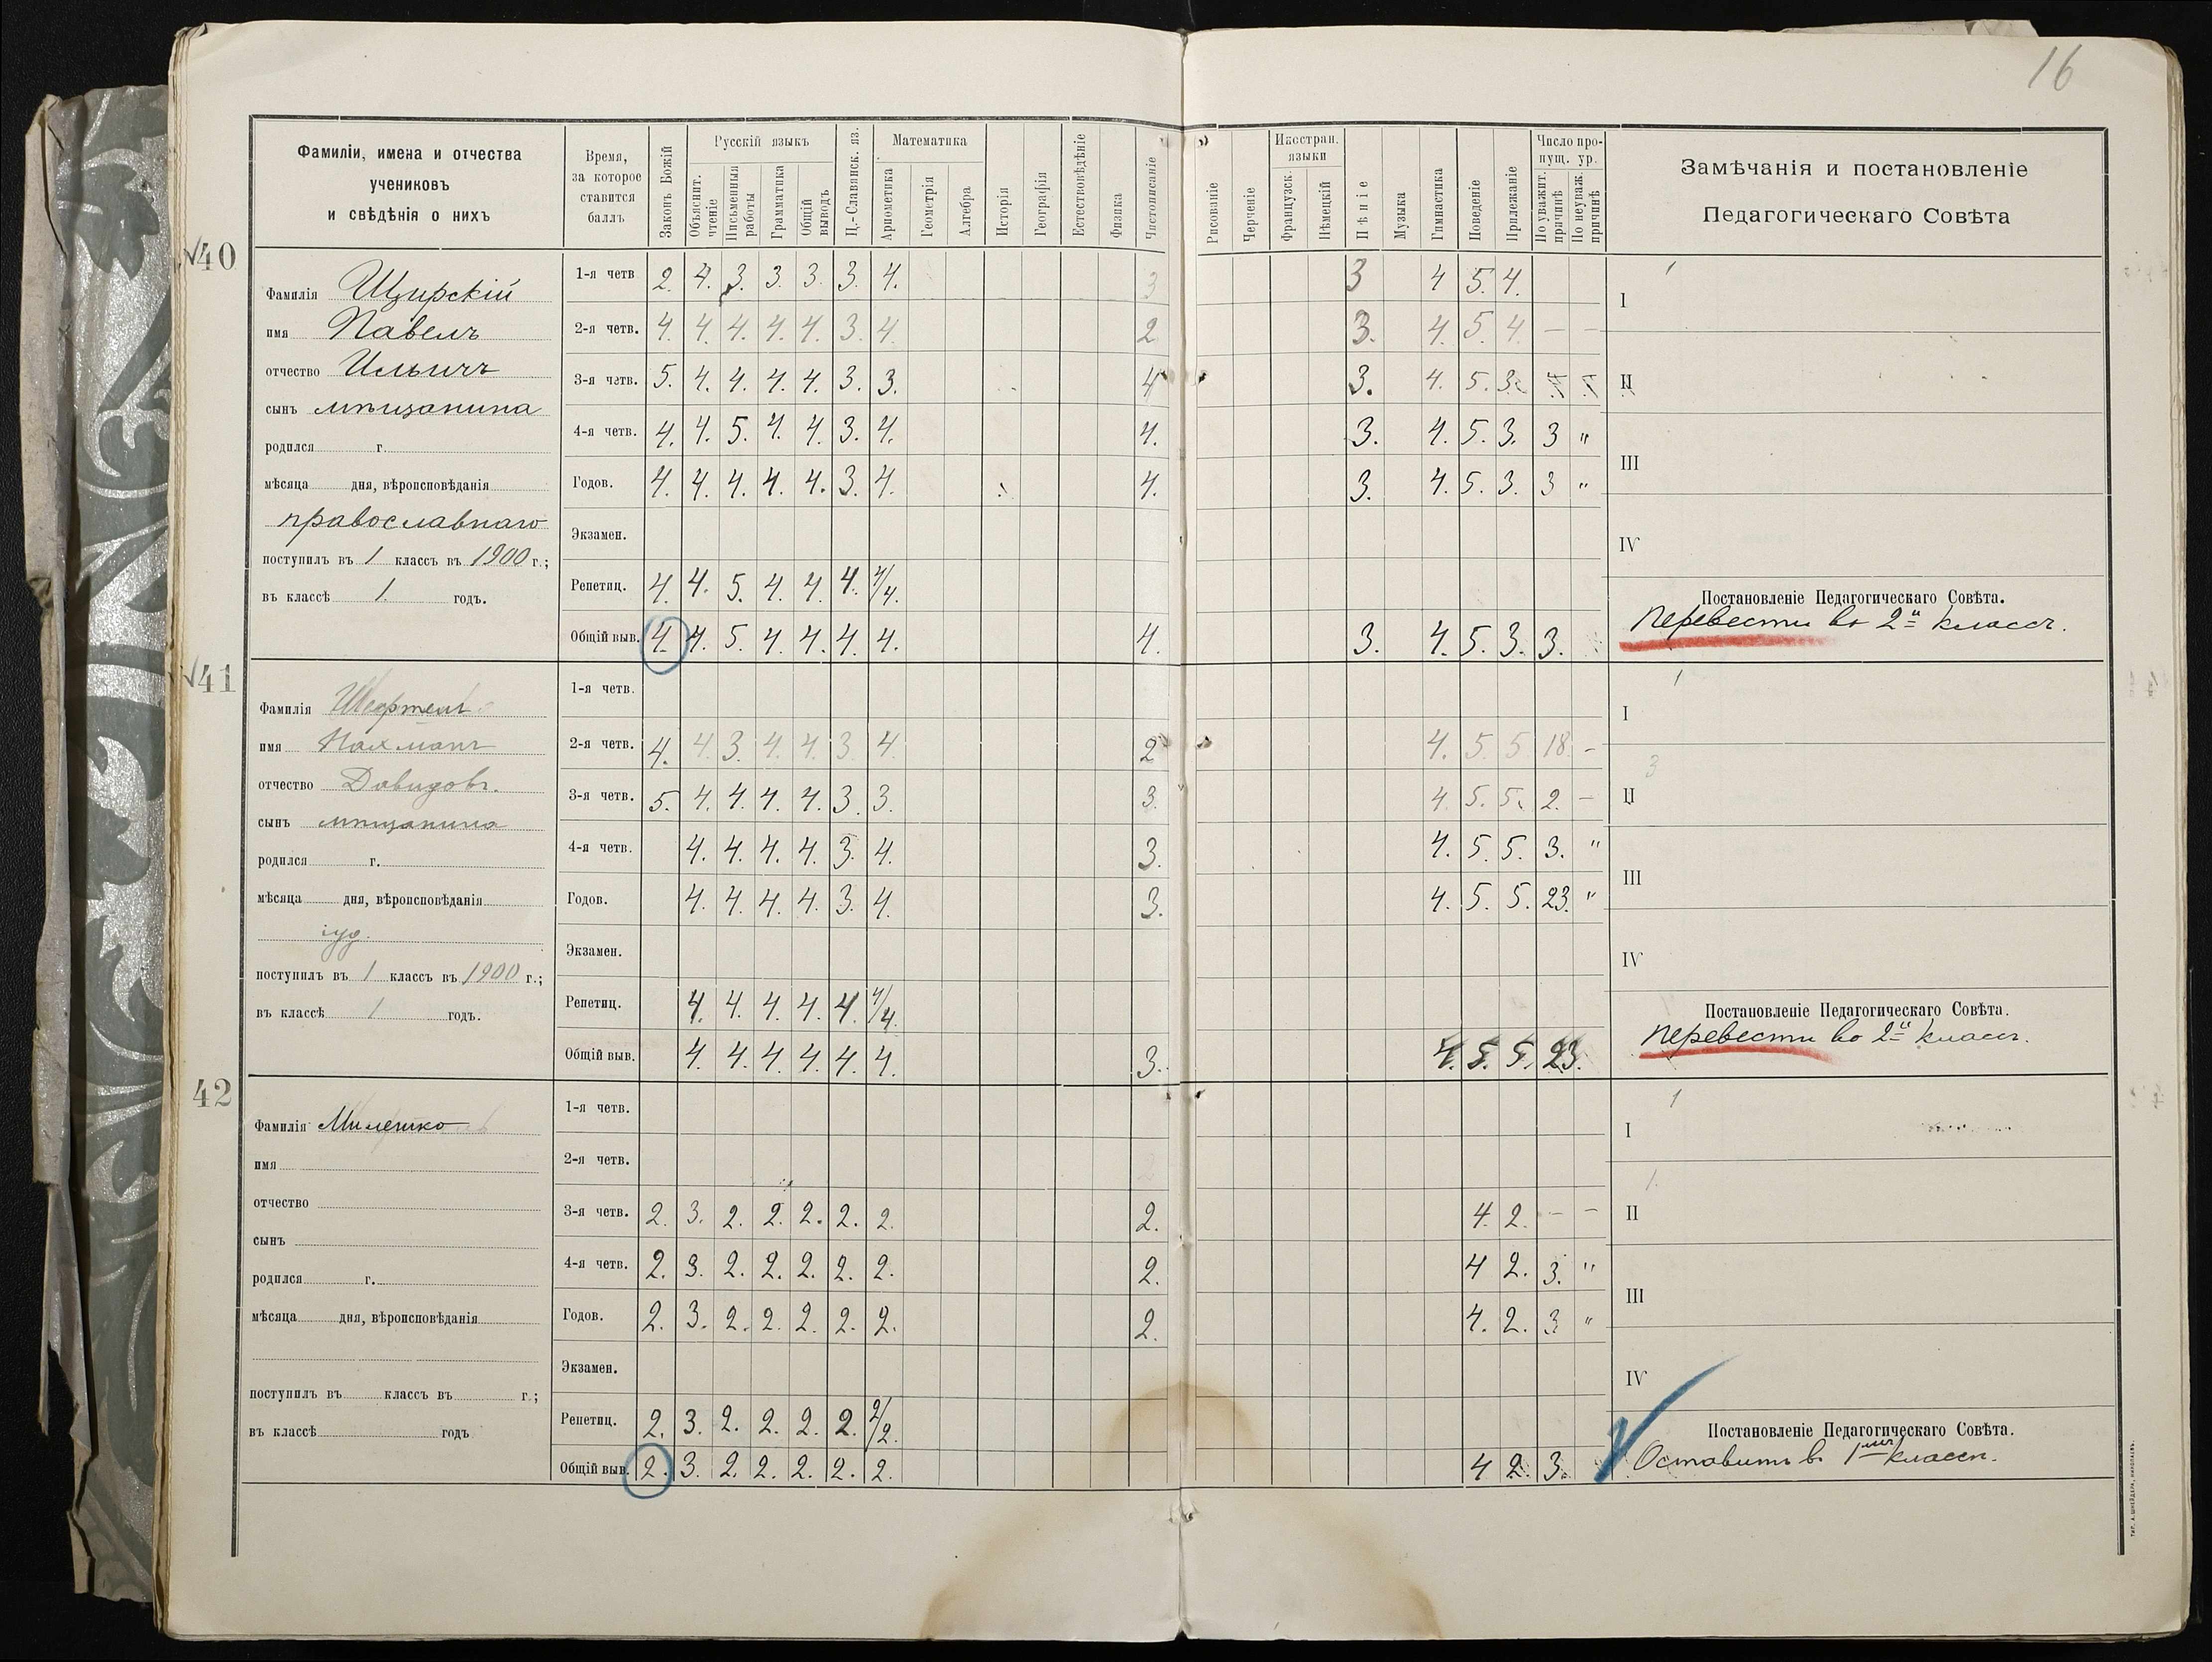 16
Фамиліи, имена и отчества
учениковъ
и свѣдѣнія о нихъ
Время,
за которое
ставится
баллъ
Законъ Божій
Русскій языкъ
Объяснит. чтеніе
Письменныя работы
Грамматика
Общій выводъ
Ц.-Славянск. яз.
Математика
Ариөметика
Геометрія
Алгебра
Исторія
Географія
Естествовѣдѣніе
Физика
Чистописаніе
Рисованіе
Черченіе
Иностран. языки
Французск.
Нѣмецкій
Пѣніе
Музыка
Гимнастика
Поведеніе
Прилежаніе
Число пропущ. ур.
По уважит. причинѣ
По неуваж. причинѣ
Замѣчанія и постановленіе
Педагогическаго Совѣта
40
Фамилія Щирскій
имя Павелъ
отчество Ильичъ
сынъ мѣщанина
родился г.
мѣсяца дня, вѣроисповѣданія
православнаго
поступилъ въ 1 классъ въ 1900 г.;
въ классѣ 1. годъ.
1-я четв 2. 4. 3. 3. 3. 3. 4. 3 3 4 5. 4.
2-я четв. 4. 4. 4. 4. 4. 3. 4. 2 3. 4. 5 4 — —
3-я четв. 5. 4. 4. 4. 4. 3. 3. 4 3. 4. 5. 3.
4-я четв. 4. 4. 5. 4. 4. 3. 4. 4. 3. 4. 5. 3. 3 "
Годов. 4. 4. 4. 4. 4. 3. 4. 4. 3. 4. 5. 3. 3 "
Экзамен.
Репетиц. 4. 4. 5. 4. 4. 4. 4/4.
Общій выв. 4. 4. 5. 4. 4. 4. 4. 4. 3. 4. 5. 3. 3.
I
II
III
IV
Постановленіе Педагогическаго Совѣта.
Перевести во 2й классъ.
41
Фамилія
имя Нахманъ
отчество Давидовъ.
сынъ мѣщанина
родился г.
мѣсяца дня, вѣроисповѣданія
іуд.
поступилъ въ 1 классъ въ 1900 г.;
въ классѣ 1 годъ.
1-я четв.
2-я четв. 4. 4 3. 4. 4. 3 4 2 4. 5 5 18 –
3-я четв. 5. 4. 4. 4. 4. 3. 3. 3. 4. 5. 5. 2. –
4-я четв. 4. 4. 4. 4. 3. 4. 3. 4. 5. 5. 3. "
Годов. 4. 4. 4. 4. 3. 4. 3. 4. 5. 5. 23. "
Экзамен.
Репетиц. 4. 4. 4. 4. 4. 4/4.
Общій выв. 4. 4. 4. 4. 4. 4. 3. 4. 5. 5. 23.
I
3
II
III
IV
Постановленіе Педагогическаго Совѣта.
Перевести во 2й классъ.
42
Фамилія Милешко
имя
отчество
сынъ
родился г.
мѣсяца дня, вѣроисповѣданія
поступилъ въ классъ въ г.;
въ классѣ годъ
1-я четв.
2-я четв.
3-я четв. 2. 3. 2. 2. 2. 2. 2. 2. 4. 2. – –
4-я четв. 2. 3. 2. 2. 2. 2. 2. 2. 4 2. 3. "
Годов. 2. 3. 2. 2. 2. 2. 2. 2. 4. 2. 3 "
Экзамен.
Репетиц. 2. 3. 2. 2. 2. 2. 2/2.
Общій выв. 2. 3. 2. 2. 2. 2. 2. 4 2. 3.
1
I
1.
II
III
IV
Постановленіе Педагогическаго Совѣта.
Оставить въ 1мъ классѣ.
ТИП. А. ШНЕЙДЕРА, НИКОЛАЕВЪ.